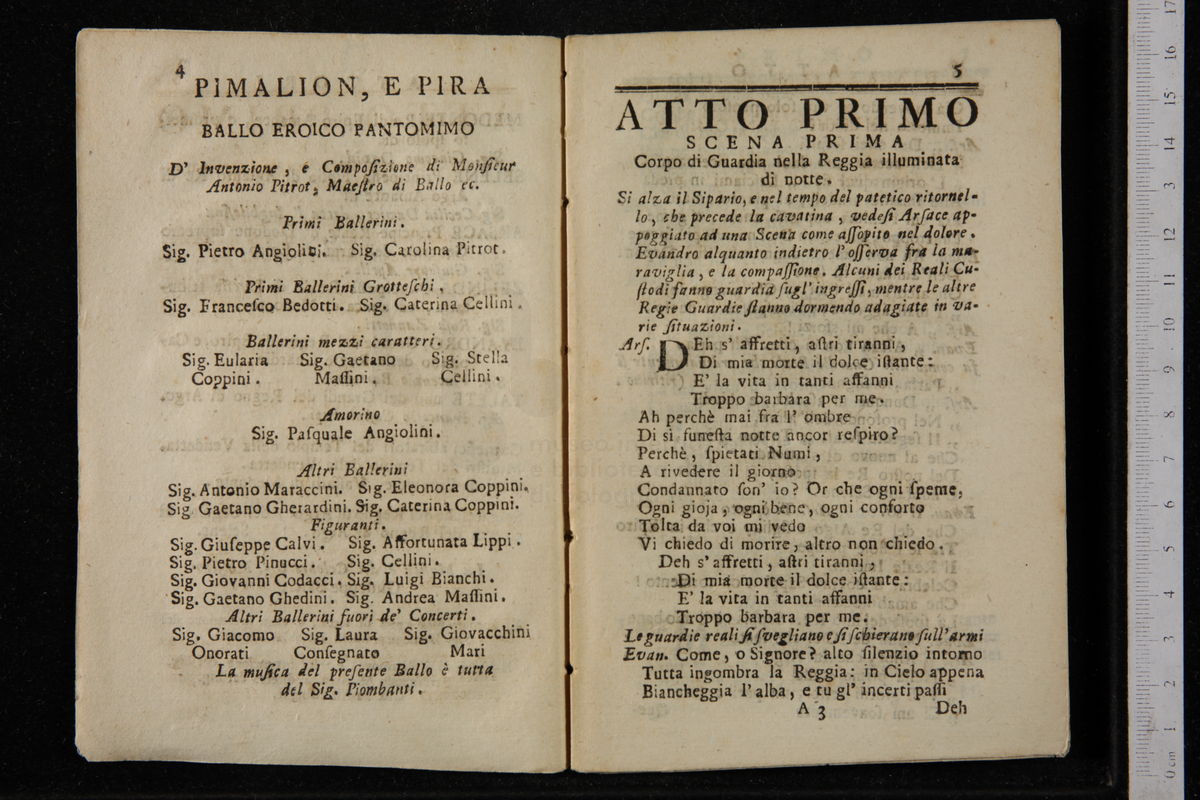 4
PIMALION, E PIRA
BALLO EROICO PANTOMIMO
D' Invenzione, e Compoſizione di Monſieur
Antonio Pitrot, Maeſtro di Ballo ec.
Primi Ballerini.
Sig. Pietro Angiolini. Sig. Carolina Pitrot.
Primi Ballerini Grotteſchi,
Sig. Franceſco Bedotti. Sig. Caterina Cellini.
Ballerini mezzi caratteri.
Sig. Eularia Sig. Gaetano Sig. Stella
Coppini. Maſſini. Cellini.
Amorino
Sig. Paſquale Angiolini.
Altri Ballerini
Sig. Antonio Maraccini. Sig. Eleonora Coppini.
Sig. Gaetano Gherardini. Sig. Caterina Coppini.
Figuranti.
Sig. Giuſeppe Calvi. Sig. Affortunata Lippi.
Sig. Pietro Pinucci. Sig. Cellini.
Sig. Giovanni Codacci. Sig. Luigi Bianchi.
Sig. Gaetano Ghedini. Sig. Andrea Maſſini.
Altri Ballerini fuori de' Concerti.
Sig. Giacomo Sig. Laura Sig. Giovacchini
Onorati Conſegnato Mari
La muſica del preſente Ballo è tutta
del Sig. Piombanti.
5
ATTO PRIMO
SCENA PRIMA
Corpo di Guardia nella Reggia illuminata
di notte.
Si alza il Sipario, e nel tempo del patetico ritornel-
lo, che precede la cavatina, vedeſi Arſace ap-
poggiato ad una Scena come aſſopito nel dolore.
Evandro alquanto indietro l' oſſerva fra la ma-
raviglia, e la compaſſione. Alcuni dei Reali Cu-
ſtodi fanno guardia ſugl' ingreſſi, mentre le altre
Regie Guardie ſtanno dormendo adagiate in va-
rie ſituazioni.
Arſ. DEh s' affretti, aſtri tiranni,
Di mia morte il dolce iſtante:
E' la vita in tanti affanni
Troppo barbara per me.
Ah perchè mai fra l' ombre
Di sì funeſta notte ancor reſpiro?
Perchè, ſpietati Numi,
A rivedere il giorno
Condannato ſon' io? Or che ogni ſpeme,
Ogni gioja, ogni bene, ogni conforto
Tolta da voi mi vedo
Vi chiedo di morire, altro non chiedo.
Deh s' affretti, aſtri tiranni,
Di mia morte il dolce iſtante:
E' la vita in tanti affanni
Troppo barbara per me.
Le guardie reali ſi ſvegliano e ſi ſchierano ſull' armi
Evan. Come, o Signore? alto ſilenzio intorno
Tutta ingombra la Reggia: in Cielo appena
Biancheggia l' alba, e tu gl' incerti paſſi
A 3 Deh